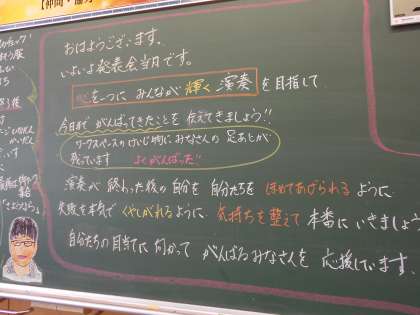 おはようございます。
いよいよ発表会当日です。
心を一つに みんなが 輝く 演奏 を目指して
今日まで がんばってきたことを 伝えてきましょう!!
ワークスペースの けいじ物に みなさんの 足あとが
残っています よくがんばった!!
演奏が 終わった後の自分を 自分たちを ほめてあげられる ように
失敗を本気で くやしがれるように 気持ちを整えて 本番に いきましょう
自分たちの目当てに 向かって がんばるみなさんを 応援しています。
さようなら